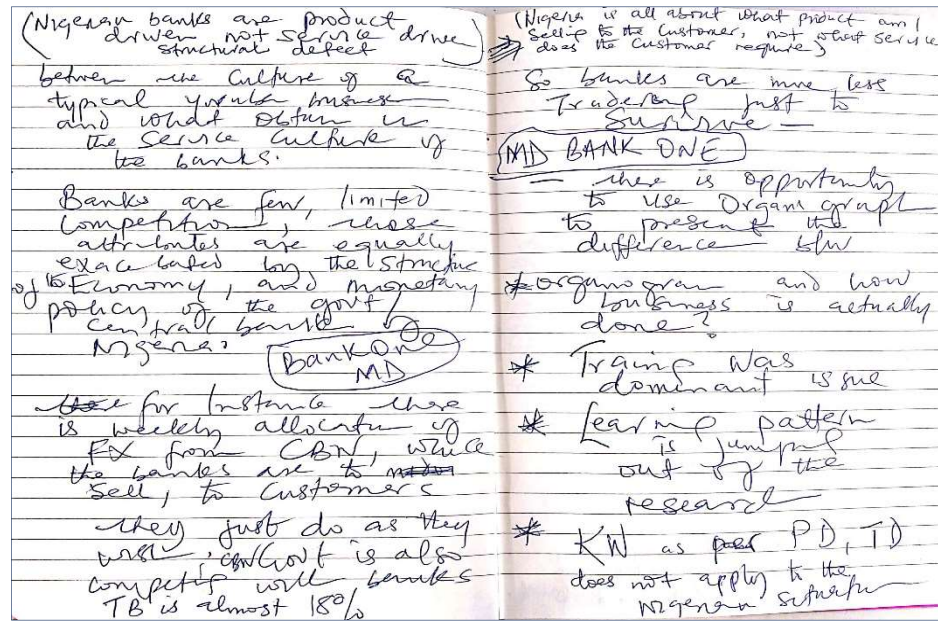 (Nigerian banks are product
driven not service drive
structural defect)
between the Culture of a
typical yoruba business
and what obtain in
the Service Culture of
the banks.
Banks are few, limited
Competition, those
attributes are equally
exacabated by the Structure
of Economy, and monetary
policy of the govt /
Central bank
Nigeria.
Bank One
MD
for Instance there
is weekly allocation of
FX from CBN, which
the banks are to
Sell, to Customers
they just do as they
wish, CBN/Govt is also
competing with banks
TB is almost 18%
(Nigeria is all about what product am I
Selling to the Customer, not what service
does the Customer require)
So banks are more less
Tradering just to
Survive —
MD BANK ONE
— there is opportunity
to use Organi graph
to present the
difference b/w
* organogram and how
business is actually
done?
* Training was
dominant issue
* Learning pattern
is jumping
out of the
research
* KW as PD, TD
does not apply to the
Nigerian Situation